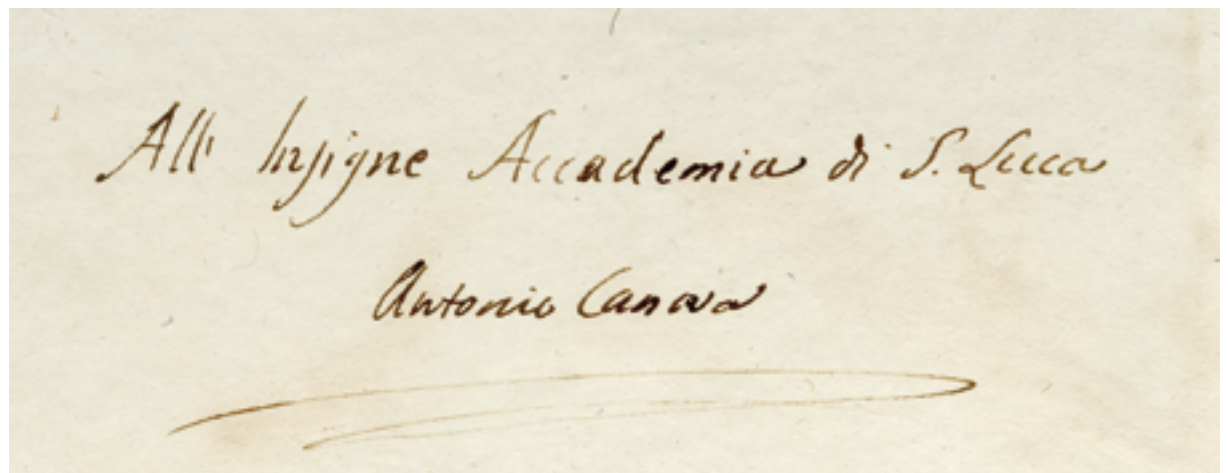 All' Insigne Accademia di S. Luca
Antonio Canova